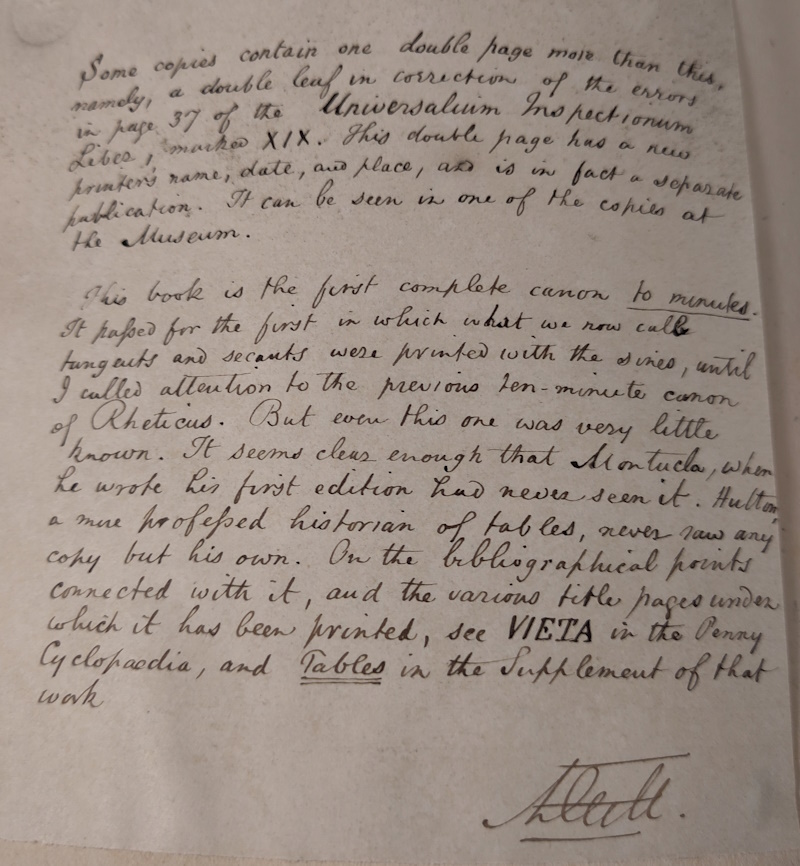 Some copies contain one double page more than this,
namely, a double leaf in correction of the errors
in page 37 of the Universalium Inspectionum
Liber, marked XIX. This double page has a new
printer's name, date, and place, and is in fact a separate
publication. It can be seen in one of the copies at
the Museum.
This book is the first complete canon to minutes.
It passed for the first in which what we now call
tangents and secants were printed with the sines, until
I called attention to the previous ten-minute canon
of Rheticus. But even this one was very little
known. It seems clear enough that Montucla, when
he wrote his first edition had never seen it. Hutton,
a more professed historian of tables, never saw any
copy but his own. On the bibliographical points
connected with it, and the various title pages under
which it has been printed, see VIETA in the Penny
Cyclopaedia, and Tables in the Supplement of that
work